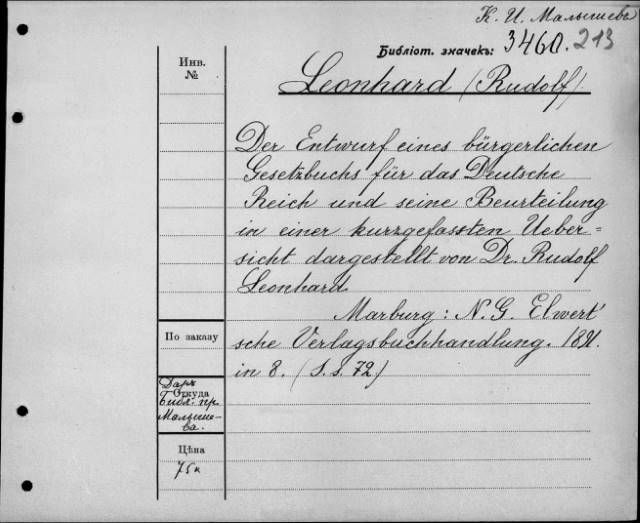 К. И. Малышевъ
Библіот. значекъ: 3460. 213
Инв.
№
Leonhard (Rudolf).
Der Entwurf eines bürgerlichen
Gesetzbuchs für das Deutsche
Reich und seine Beurteilung
in einer kurzgefassten Ueber=
sicht dargestellt von Dr. Rudolf
Leonhard.
Marburg: N. G. Elwert
По заказу
sche Verlagsbuchhandlung. 1891.
in 8. (S. s. 72.)
Даръ
Откуда
Библ. пр.
Малыше-
ва.
Цѣна
75 к